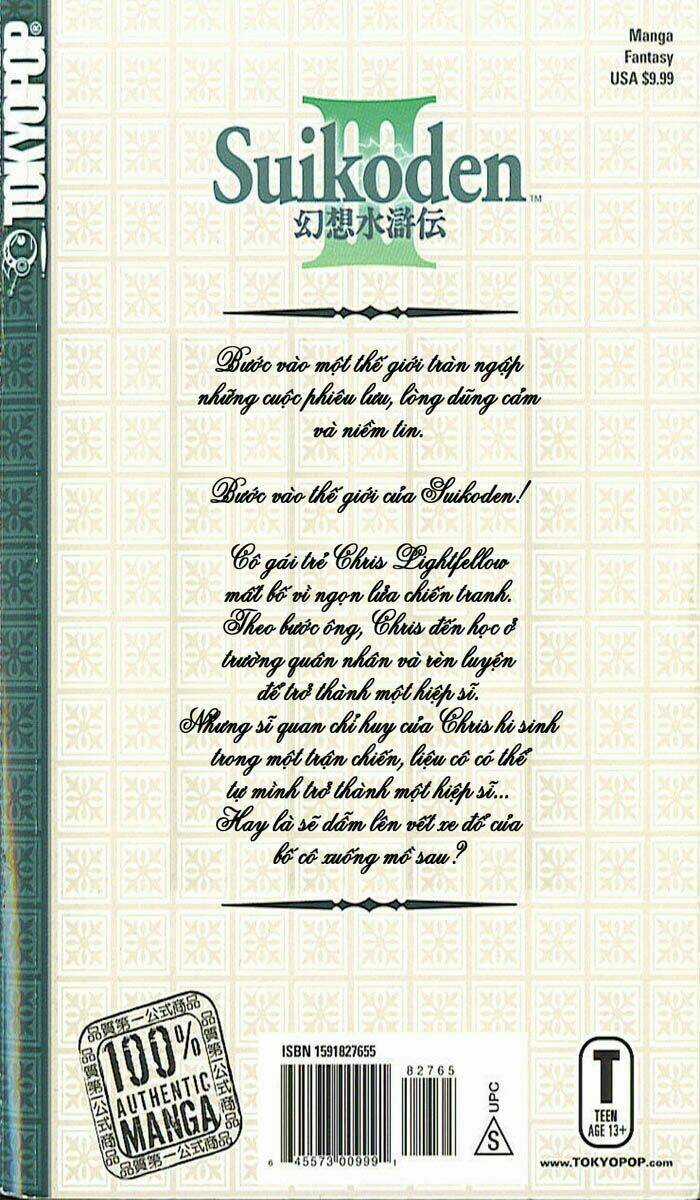 TOKYOPOP
Manga
Fantasy
USA $9.99
III
Suikoden™
幻想水滸伝
Bước vào một thế giới tràn ngập
những cuộc phiêu lưu, lòng dũng cảm
và niềm tin.
Bước vào thế giới của Suikoden!
Cô gái trẻ Chris Lightfellow
mất bố vì ngọn lửa chiến tranh.
Theo bước ông, Chris đến học ở
trường quân nhân và rèn luyện
để trở thành một hiệp sĩ.
Nhưng sĩ quan chỉ huy của Chris hi sinh
trong một trận chiến, liệu cô có thể
tự mình trở thành một hiệp sĩ...
Hay là sẽ dẫm lên vết xe đổ của
bố cô xuống mồ sau?
品質第一公式商品
品質第一公式商品
品質第一公式商品
品質第一公式商品
100%
AUTHENTIC
MANGA
ISBN 1591827655
82765
6 45573 00999 1
UPC
S
T
TEEN
AGE 13+
www.TOKYOPOP.com